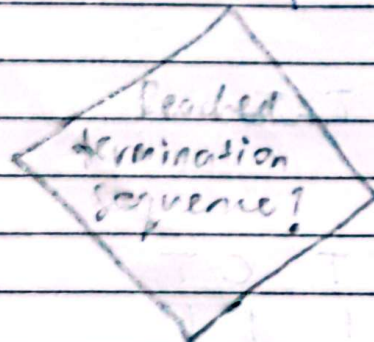 Reached
termination
sequence?